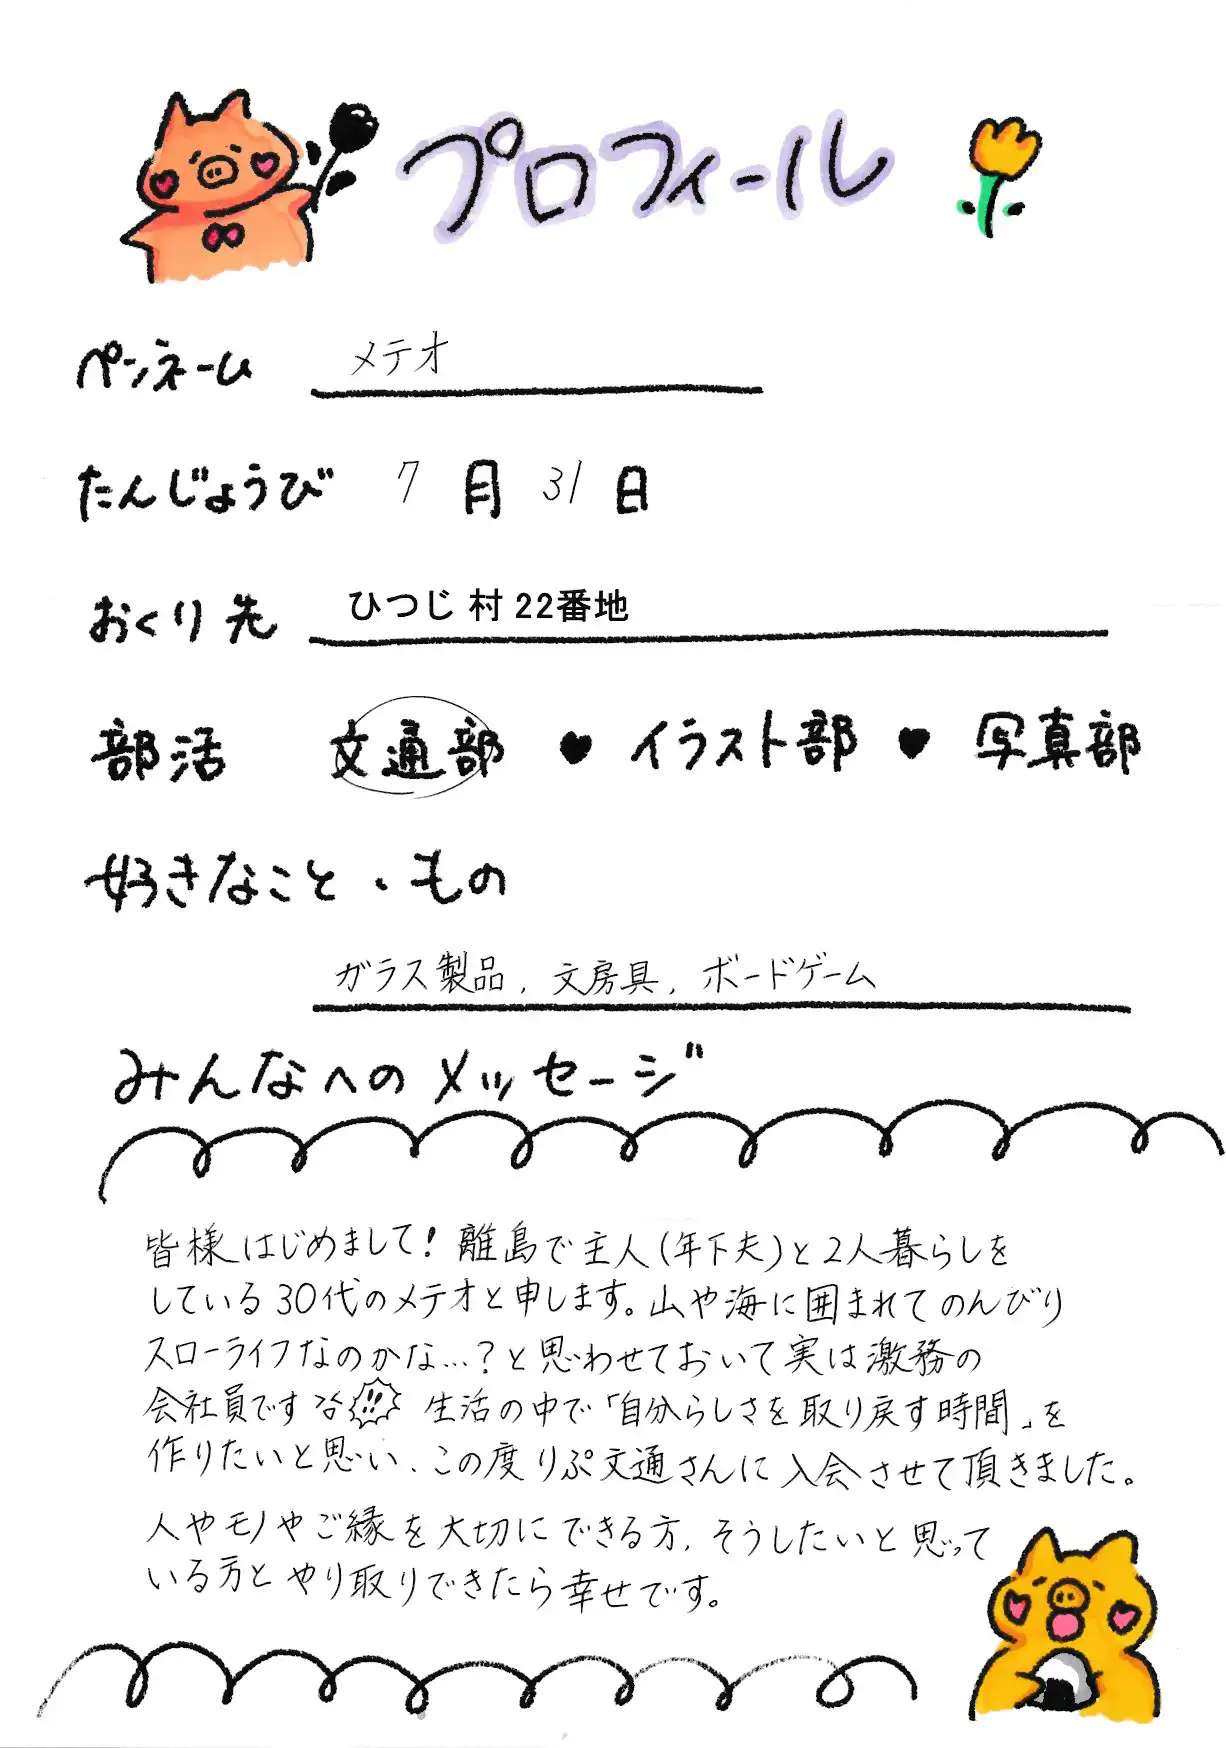 プロフィール
ペンネーム メテオ
たんじょうび 7月31日
おくり先 ひつじ 村 22番地
部活 文通部 ♥ イラスト部 ♥ 写真部
好きなこと・もの
ガラス製品, 文房具, ボードゲーム
みんなへのメッセージ
皆様はじめまして! 離島で主人(年下夫)と2人暮らしを
している30代のメテオと申します。山や海に囲まれてのんびり
スローライフなのかな…?と思わせておいて実は激務の
会社員です!! 生活の中で「自分らしさを取り戻す時間」を
作りたいと思い、この度りぷ文通さんに入会させて頂きました。
人やモノやご縁を大切にできる方, そうしたいと思って
いる方とやり取りできたら幸せです。